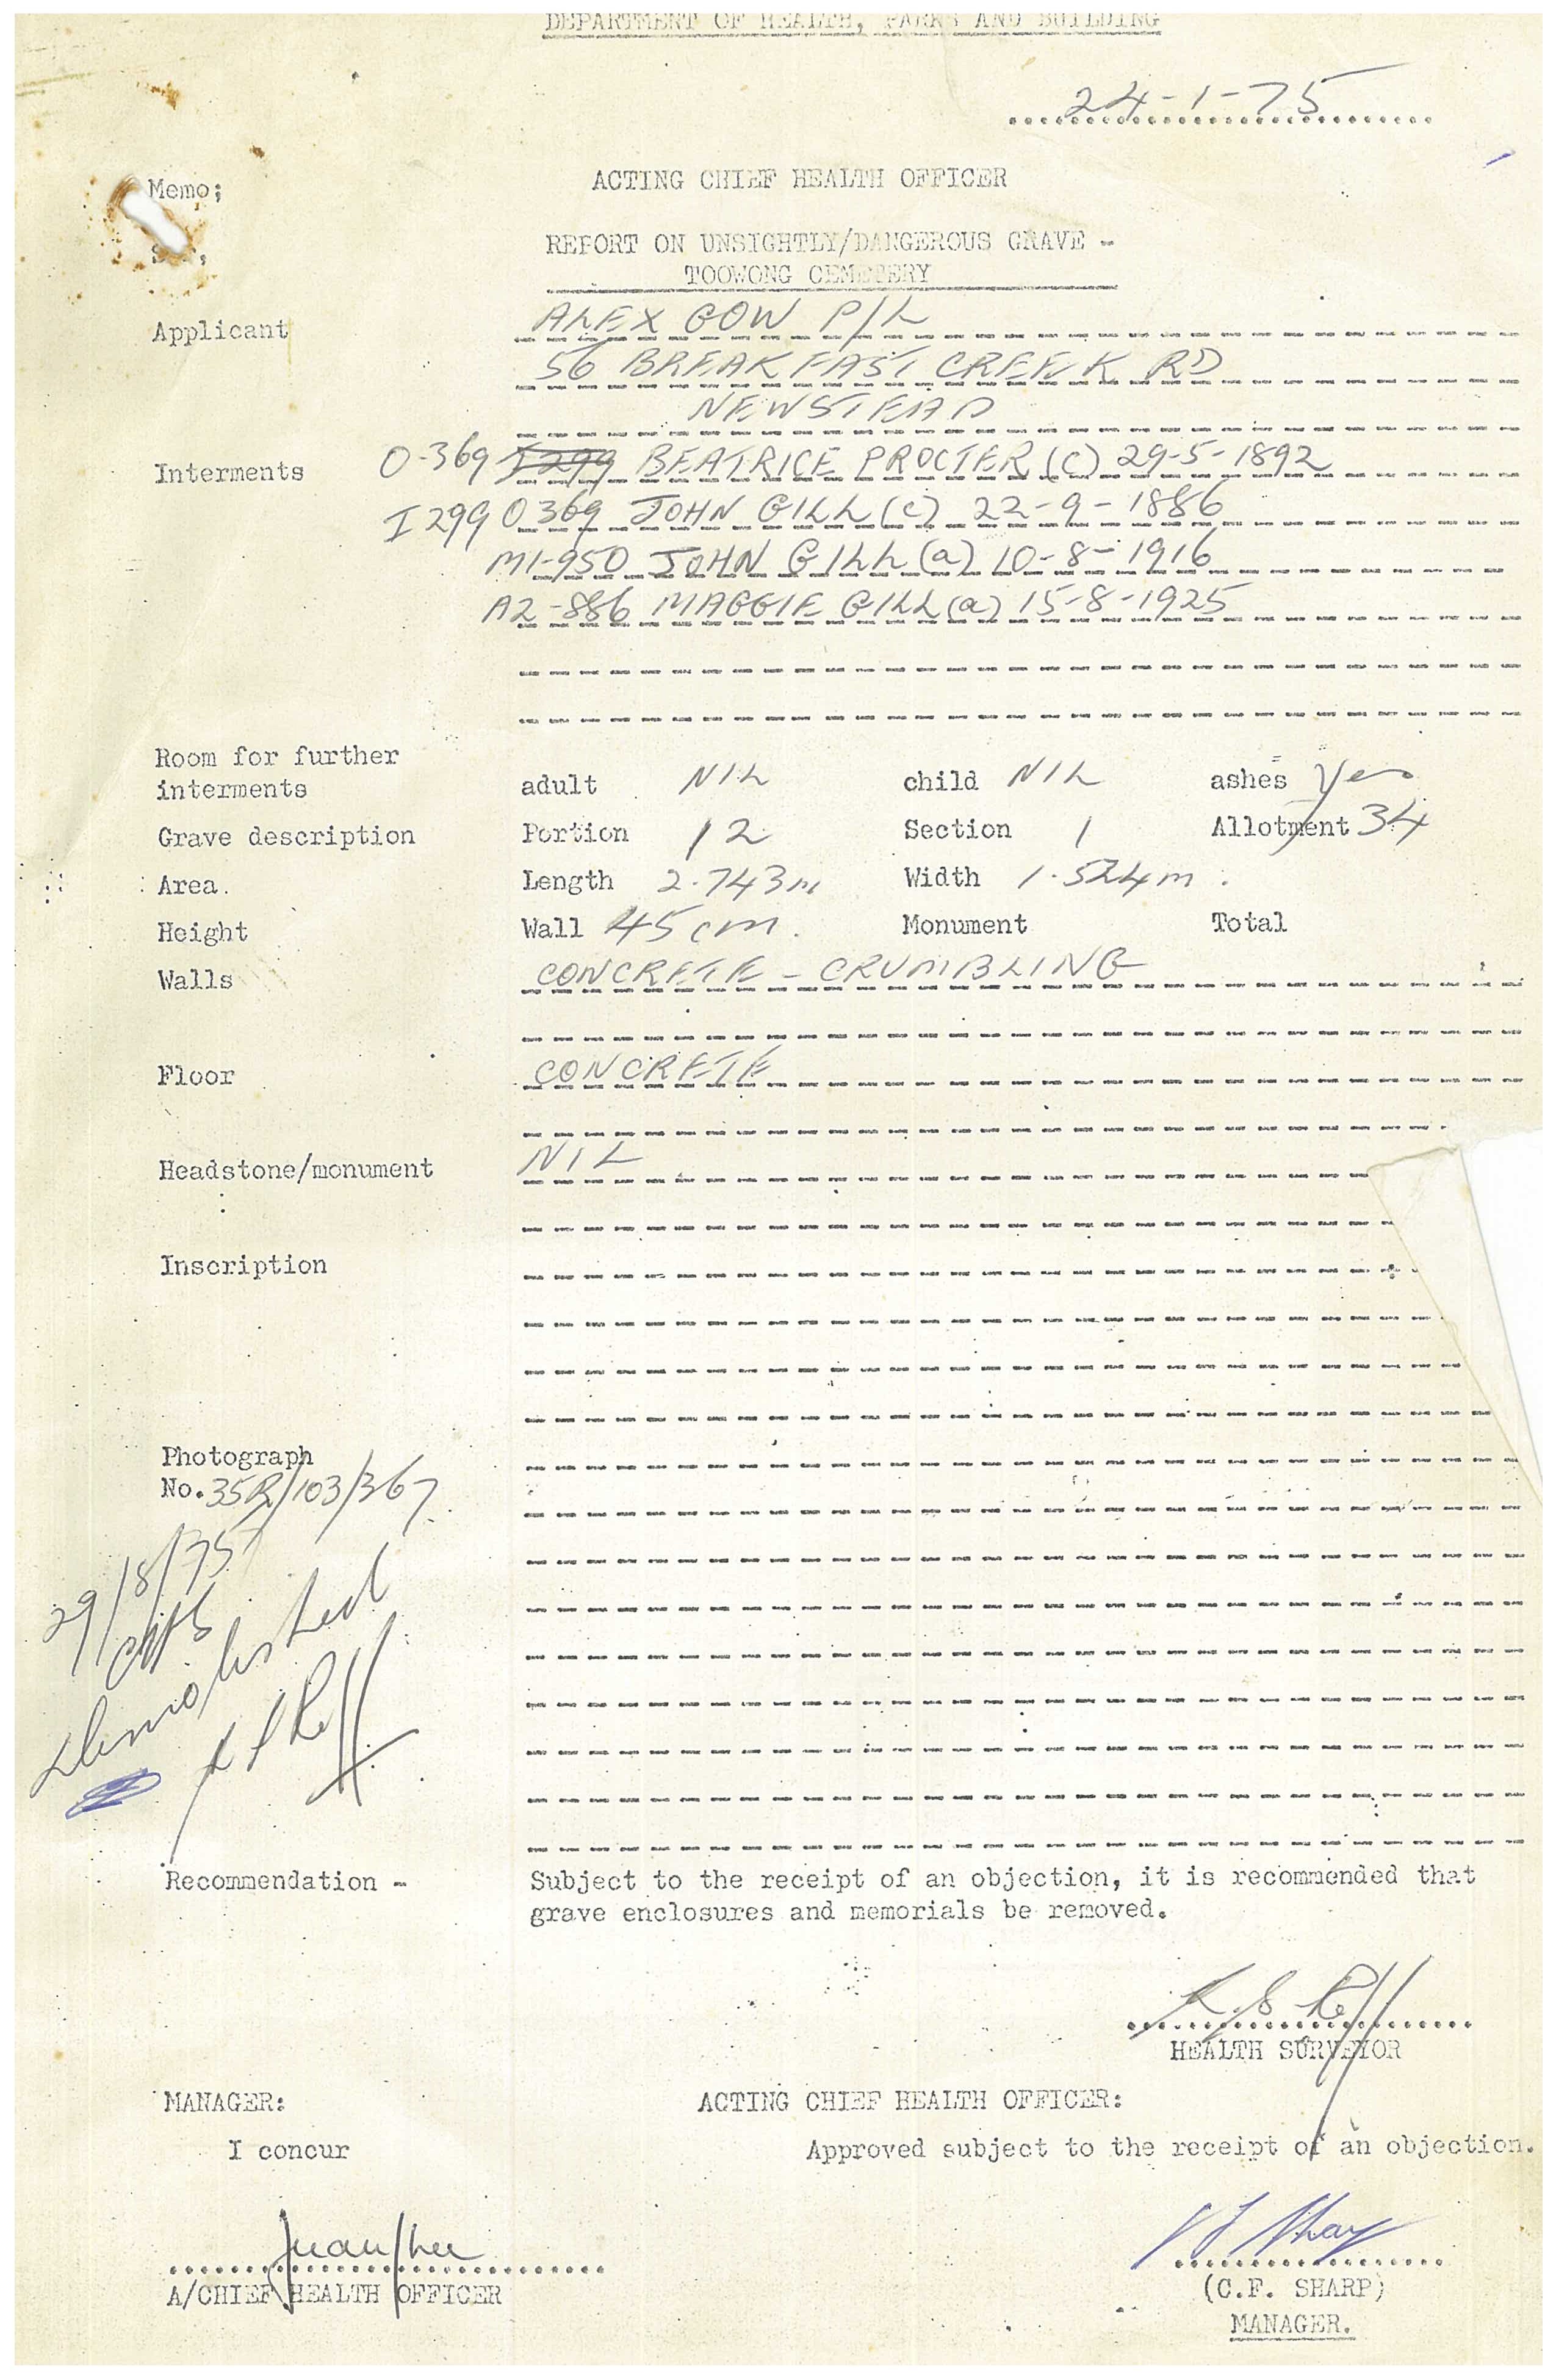 DEPARTMENT OF HEALTH, PARKS AND BUILDING
24-1-75
Memo; ACTING CHIEF HEALTH OFFICER
REPORT ON UNSIGHTLY/DANGEROUS GRAVE -
TOOWONG CEMETERY
Applicant ALEX GOW P/L
56 BREAKFAST CREEK RD
NEWSTEAD
Interments O-369 I299 BEATRICE PROCTER (C) 29-5-1892
I 299 O369 JOHN GILL (C) 22-9-1886
M1-950 JOHN GILL (a) 10-8-1916
A2-886 MAGGIE GILL (a) 15-8-1925
Room for further
interments adult NIL child NIL ashes Yes
Grave description Portion 12 Section 1 Allotment 34
Area. Length 2.743m Width 1.524m.
Height Wall 45 cm. Monument Total
Walls CONCRETE - CRUMBLING
Floor CONCRETE
Headstone/monument NIL
Inscription
Photograph
No. 35R/103/367
29/8/75
demolished
Recommendation - Subject to the receipt of an objection, it is recommended that
grave enclosures and memorials be removed.
HEALTH SURVEYOR
MANAGER: ACTING CHIEF HEALTH OFFICER:
I concur Approved subject to the receipt of an objection.
A/CHIEF HEALTH OFFICER (C.F. SHARP)
MANAGER.